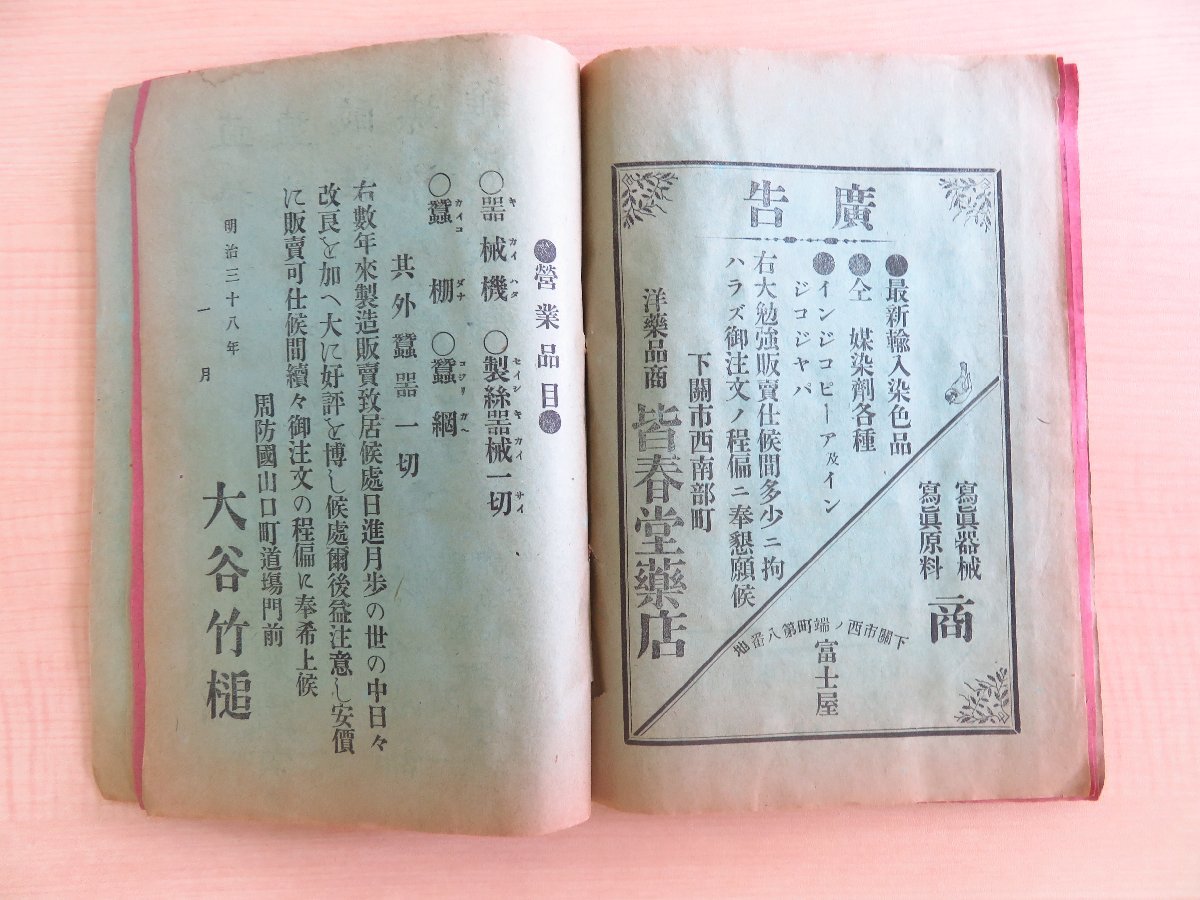 廣告
●最新輸入染色品
●仝　媒染劑各種
●インジコピーア及イン
ジコジヤパ
右大勉強販賣仕候間多少ニ拘
ハラズ御注文ノ程偏ニ奉懇願候
下關市西南部町
洋藥品商　皆春堂藥店
寫眞器械
寫眞原料
商
下關市西ノ端町第八番地
富士屋
●營業品目●
○器械機　○製絲器械一切
キカイハダ　セイシキカイサイ
○蠶棚　○蠶網
カイコダナ　コシリカヘ
其外蠶器一切
右數年來製造販賣致居候處日進月歩の世の中日々
改良を加へ大に好評を博し候處爾後益注意し安價
に販賣可仕候間續々御注文の程偏に奉希上候
明治三十八年一月
周防國山口町道塲門前
大谷竹槌